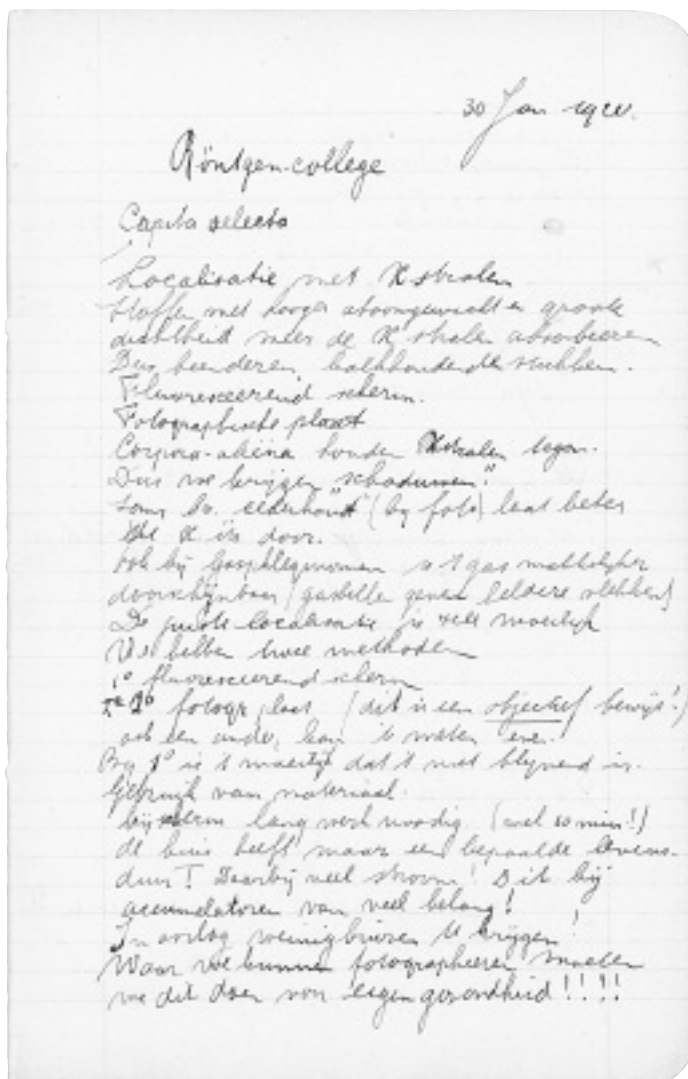 30 Jan
Röntgen-college
Capita selecta
Localisatie met X stralen
Stoffen met hooger atoomgewicht en groote
dichtheid meer de X stralen absorbeeren
Dus beenderen, kalkhoudende stukken.
Fluoresceerend scherm.
Fotographische plaat
Corpora-aliena houden Xstralen tegen.
Dus we krijgen "schaduwen."
Soms bv. (bij foto) laat beter
de X in door.
ook bij is 't gas
doorschijnbaar (geven heldere vlekken)
De juiste localisatie is zeer moeilijk
We hebben twee methoden
1° fluoresceerend scherm
2° fotogr. plaat (dit is een objectief bewijs!)
ook een ander kan 't meten
Bij 1° is 't dat 't niet blijvend is.
Gebruik van materiaal.
bij scherm lang werk noodig (wel 10 min!)
de buis heeft maar een bepaalde levens-
duur! Daarbij veel stroom! Dit bij
accumulatoren van veel belang!
In oorlog weinig te krijgen!
Waar we kunnen fotographeeren moeten
we dit doen voor eigen gezondheid!!!!